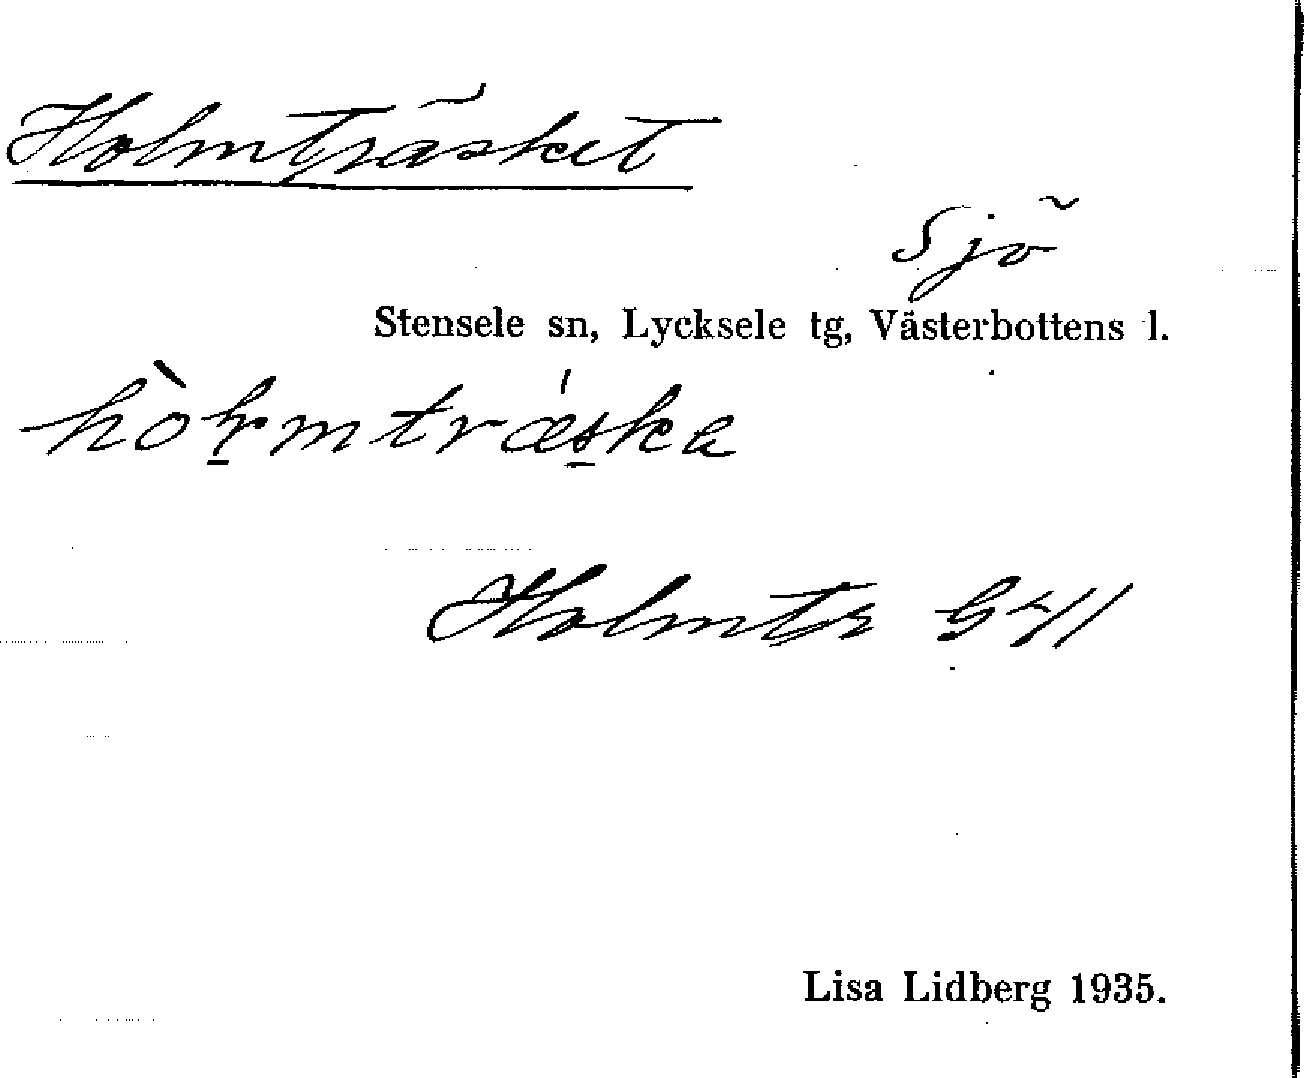 Holmträsket
Sjö
Stensele sn, Lycksele tg, Västerbottens l.
Holmtr G41
Lisa Lidberg 1935.